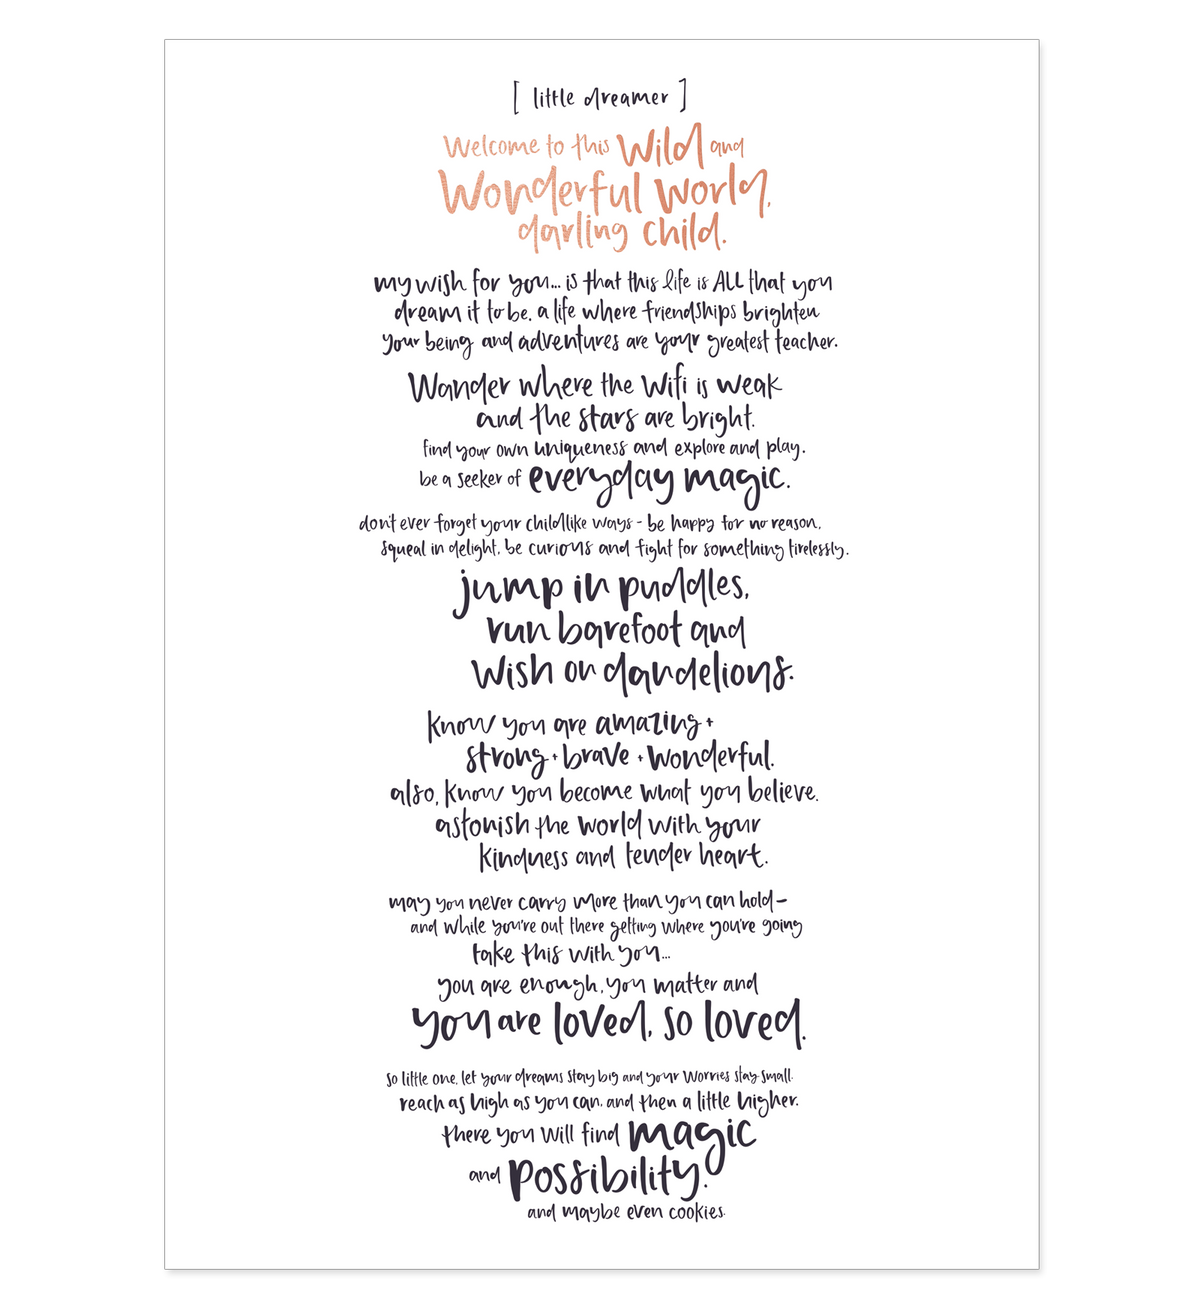 [ little dreamer ]
Welcome to this Wild and
Wonderful World,
darling child.
my wish for you... is that this life is ALL that you
dream it to be. a life where friendships brighten
your being and adventures are your greatest teacher.
Wander where the Wifi is weak
and the stars are bright.
find your own uniqueness and explore and play.
be a seeker of everyday magic.
don't ever forget your childlike ways - be happy for no reason,
squeal in delight, be curious and fight for something tirelessly.
jump in puddles,
run barefoot and
Wish on dandelions.
know you are amazing +
strong + brave + wonderful.
also, know you become what you believe.
astonish the world with your
kindness and tender heart.
may you never carry more than you can hold -
and while you're out there getting where you're going
take this with you...
you are enough, you matter and
you are loved, so loved.
so little one, let your dreams stay big and your worries stay small.
reach as high as you can. and then a little higher.
there you will find magic
and possibility.
and maybe even cookies.